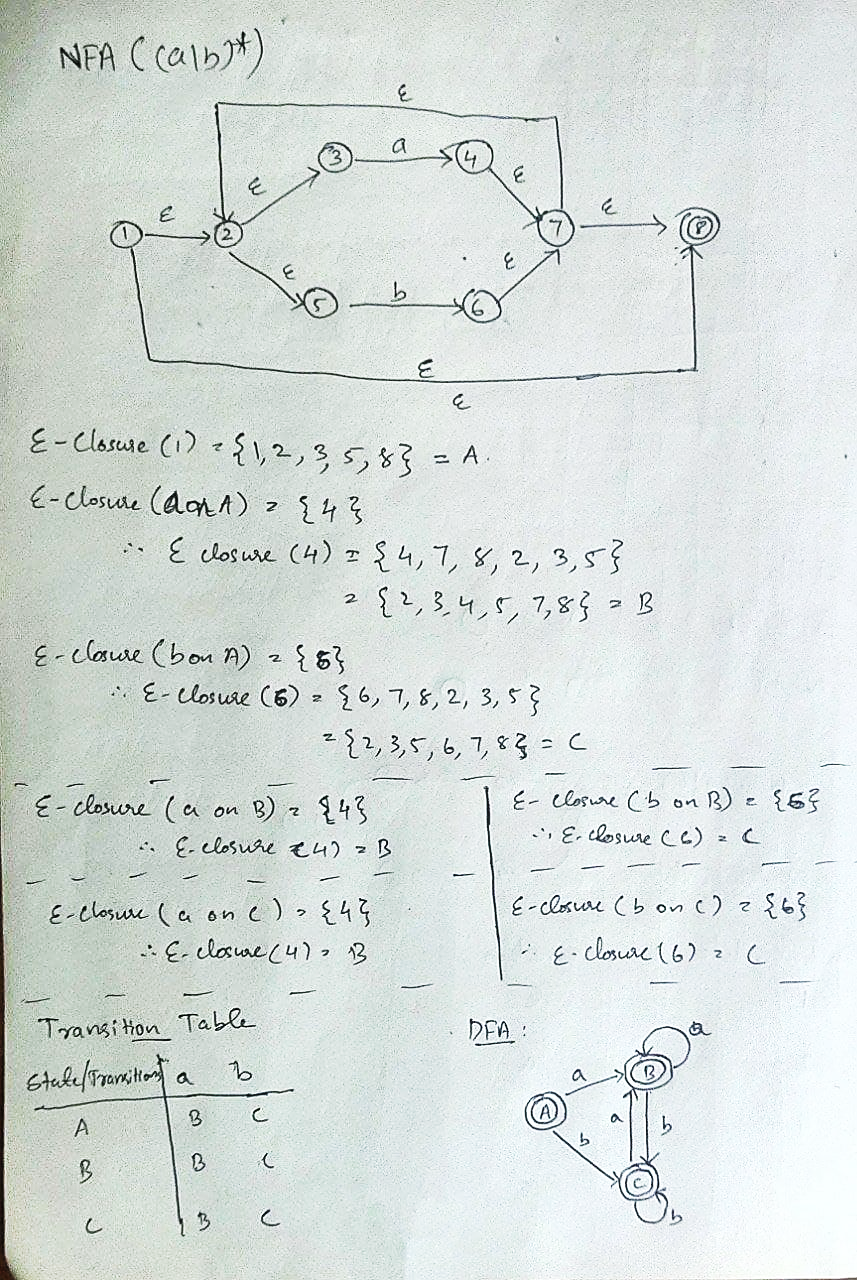 NFA ((a|b)*)
ε
3 a 4
ε ε
1 ε 2 7 ε 8
ε ε
5 b 6
ε
ε
ε-closure (1) = {1,2,3,5,8} = A.
ε-closure (a on A) = {4}
∴ ε closure (4) = {4,7,8,2,3,5}
= {2,3,4,5,7,8} = B
ε-closure (b on A) = {6}
∴ ε-closure (6) = {6,7,8,2,3,5}
= {2,3,5,6,7,8} = C
ε-closure (a on B) = {4}
∴ ε-closure (4) = B
ε-closure (b on B) = {6}
∴ ε-closure (6) = C
ε-closure (a on C) = {4}
∴ ε-closure (4) = B
ε-closure (b on C) = {6}
∴ ε-closure (6) = C
Transition Table
State/Transitions a b
A B C
B B C
C B C
DFA:
a
a B
A
a b
b
C
b